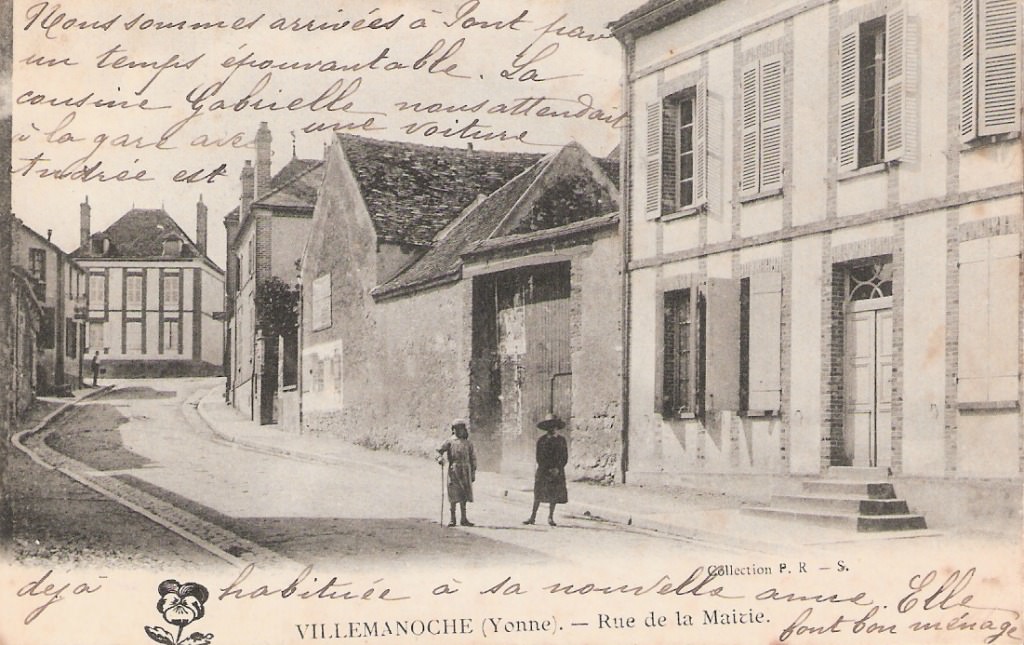 Nous sommes arrivées à Pont par
un temps épouvantable. La
cousine Gabrielle nous attendait
à la gare avec une voiture
Andrée est
Collection P. R – S.
déjà habituée à sa nouvelle amie. Elle
font bon ménage
VILLEMANOCHE (Yonne). — Rue de la Mairie.